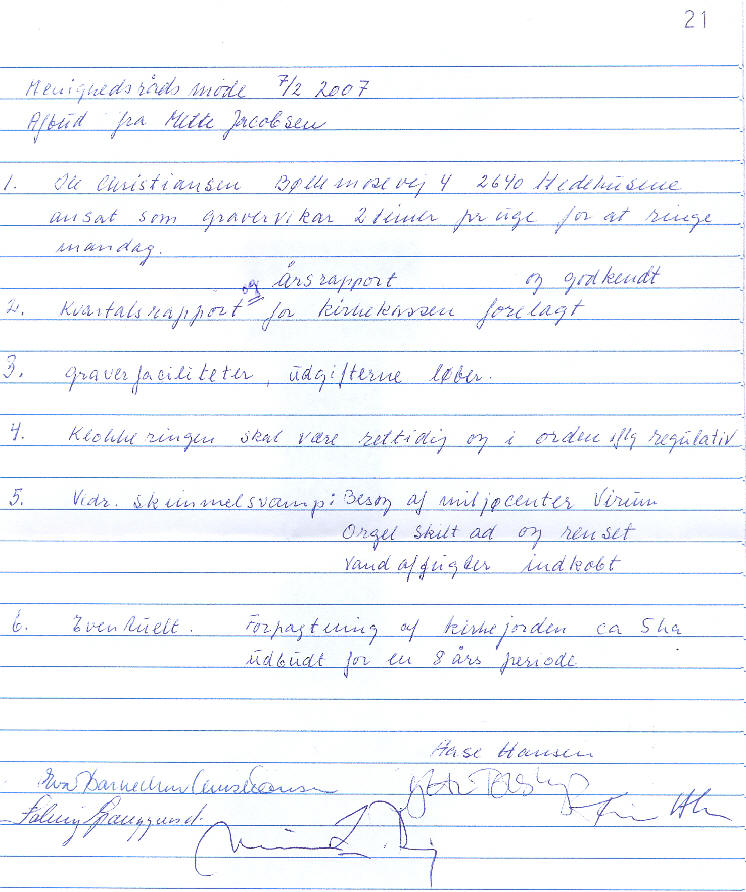 21
Menighedsråds møde 7/2 2007
Afbud fra Mette Jacobsen
1. Ole Christiansen Bøllemosevej 4 2640 Hedehusene
ansat som gravervikar 2 timer pr uge for at ringe
mandag.
og årsrapport og godkendt
2. Kvartalsrapport for kirkekassen forelagt
3. Graverfaciliteter, udgifterne løber.
4. Klokkeringen skal være rettidig og i orden iflg regulativ
5. Vedr. skimmelsvamp: Besøg af miljøcenter Virum
Orgel skilt ad og renset
Vandaffugter indkøbt
6. Eventuelt. Forpagtning af kirkejorden ca 5 ha
udbudt for en 8 års periode
Aase Hansen